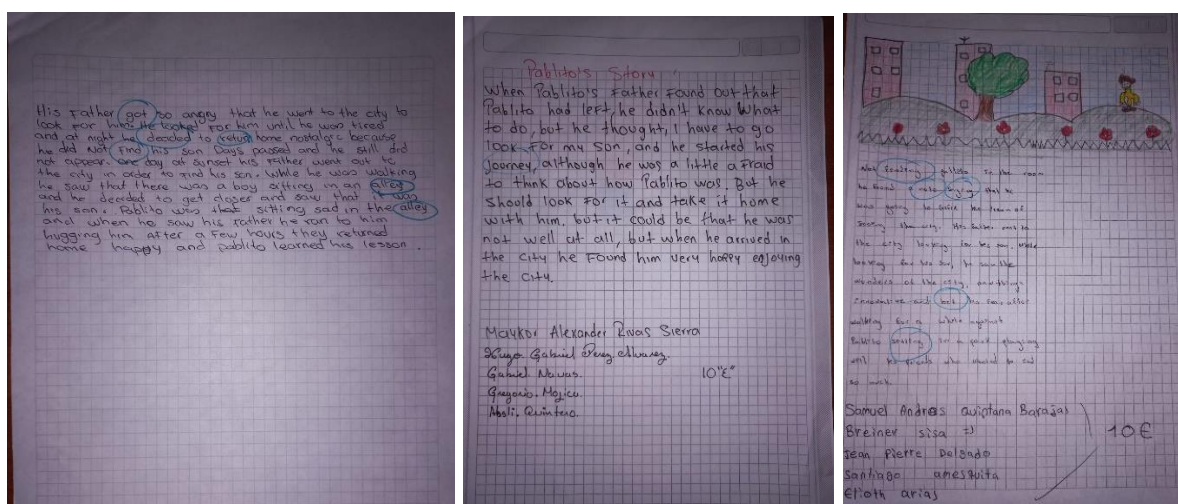 His Father got so angry that he went to the city to
look for him. He looked for him until he was tired
and at night he decided to return home nostalgic because
he did not find his son. Days passed and he still did
not appear. one day at sunset his father went out to
the city in order to find his son. While he was walking
he saw that there was a boy sitting in an alley
and he decided to get closer and saw that it was
his son. Pablito was that sitting sad in the alley
and when he saw his father he ran to him
hugging him. After a few hours they returned
home happy and pablito learned his lesson.
Pablito's Story
When Pablito's Father Found out that
Pablito had left, he didn't know What
to do, but he thought, I have to go
look For my son, and he started his
journey, although he was a little afraid
to think about how Pablito was. But he
should look for it and take it home
with him. but it could be that he was
not well at all, but when he arrived in
the city he Found him very happy enjoying
the city.
Maykor Alexander Rivas Sierra
Hugo Gabriel Perez Alvarez.
Gabriel Navas.
10"E"
Gregorio. Mojica.
Absli. Quintero.
Not finding pablito in the room
he found a note saying that he
was going to
the city looking for his son. While
looking for his son, he saw the
wonders of the city, anything
innovative and his son, after
walking for a while
Pablito sitting in a park playing
with his friends who
so much
Samuel Andres quintana Barajas
Breiner sisa =)
Jean Pierre Delgado
10 E
Santiago amesquita
Elioth arias